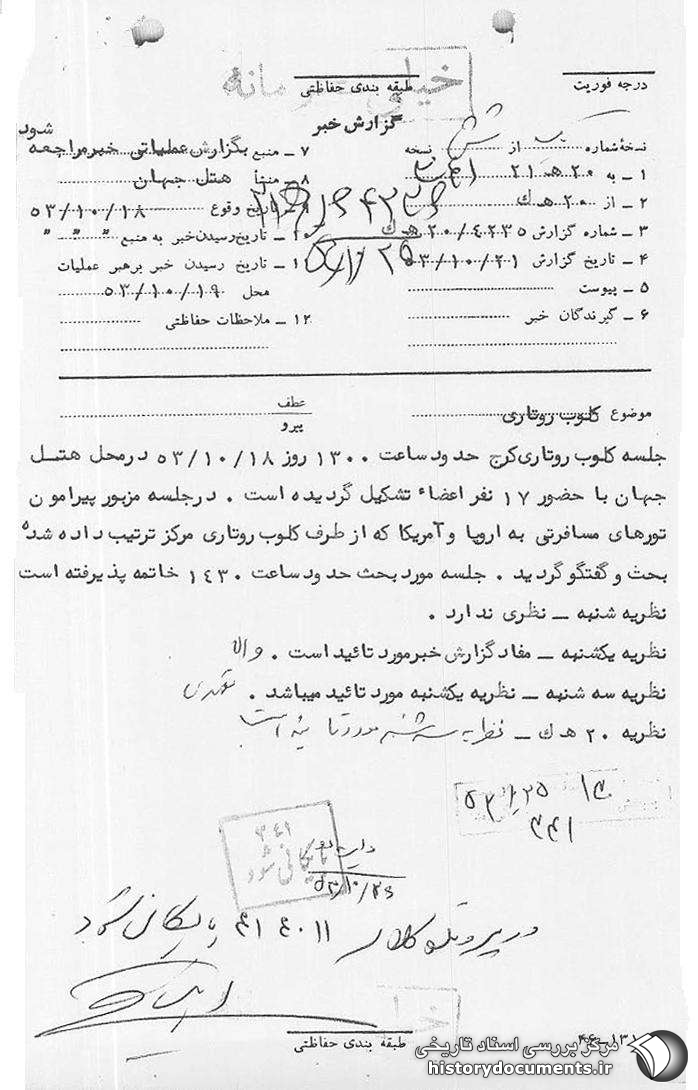 درجه فوریت
طبقه بندی حفاظتی
خیلی محرمانه
گزارش خبر
نسخه شماره از نسخه
۱ ـ به ۲۰ هـ ۲۱
۲ ـ از ۲۰ هـ ك
۳ ـ شماره گزارش ۲۰/۴۲۳۵ هـ ك
۴ ـ تاریخ گزارش ۵۳/۱۰/۲۱
۵ ـ پیوست
۶ ـ گیرندگان خبر
۷ ـ منبع بگزارش عملیاتی خبر مراجعه شود
۸ ـ منشأ هتل جهان
۹ ـ تاریخ وقوع ۵۳/۱۰/۱۸
۱۰ ـ تاریخ رسیدن خبر به منبع " " "
۱۱ ـ تاریخ رسیدن خبر برهبر عملیات
محل ۵۳/۱۰/۱۹
۱۲ ـ ملاحظات حفاظتی
موضوع کلوب روتاری
عطف
پیرو
جلسه کلوب روتاری کرج حدود ساعت ۱۳۰۰ روز ۵۳/۱۰/۱۸ در محل هتل
جهان با حضور ۱۷ نفر اعضاء تشکیل گردیده است . در جلسه مزبور پیرامون
تورهای مسافرتی به اروپا و آمریکا که از طرف کلوب روتاری مرکز ترتیب داده شده
بحث و گفتگو گردید . جلسه مورد بحث حدود ساعت ۱۴۳۰ خاتمه پذیرفته است
نظریه شنبه ـ نظری ندارد .
نظریه یکشنبه ـ مفاد گزارش خبر مورد تائید است . والا
نظریه سه شنبه ـ نظریه یکشنبه مورد تائید میباشد .
نظریه ۲۰ هـ ك ـ نظریه سه شنبه مورد تائید است
۳۴۱
بایگانی شود
۵۳/۱۰/۲۶
در پرونده کلاسه ۴۱۴۰۱۱ بایگانی شود
طبقه بندی حفاظتی
مرکز بررسی اسناد تاریخی
historydocuments.ir